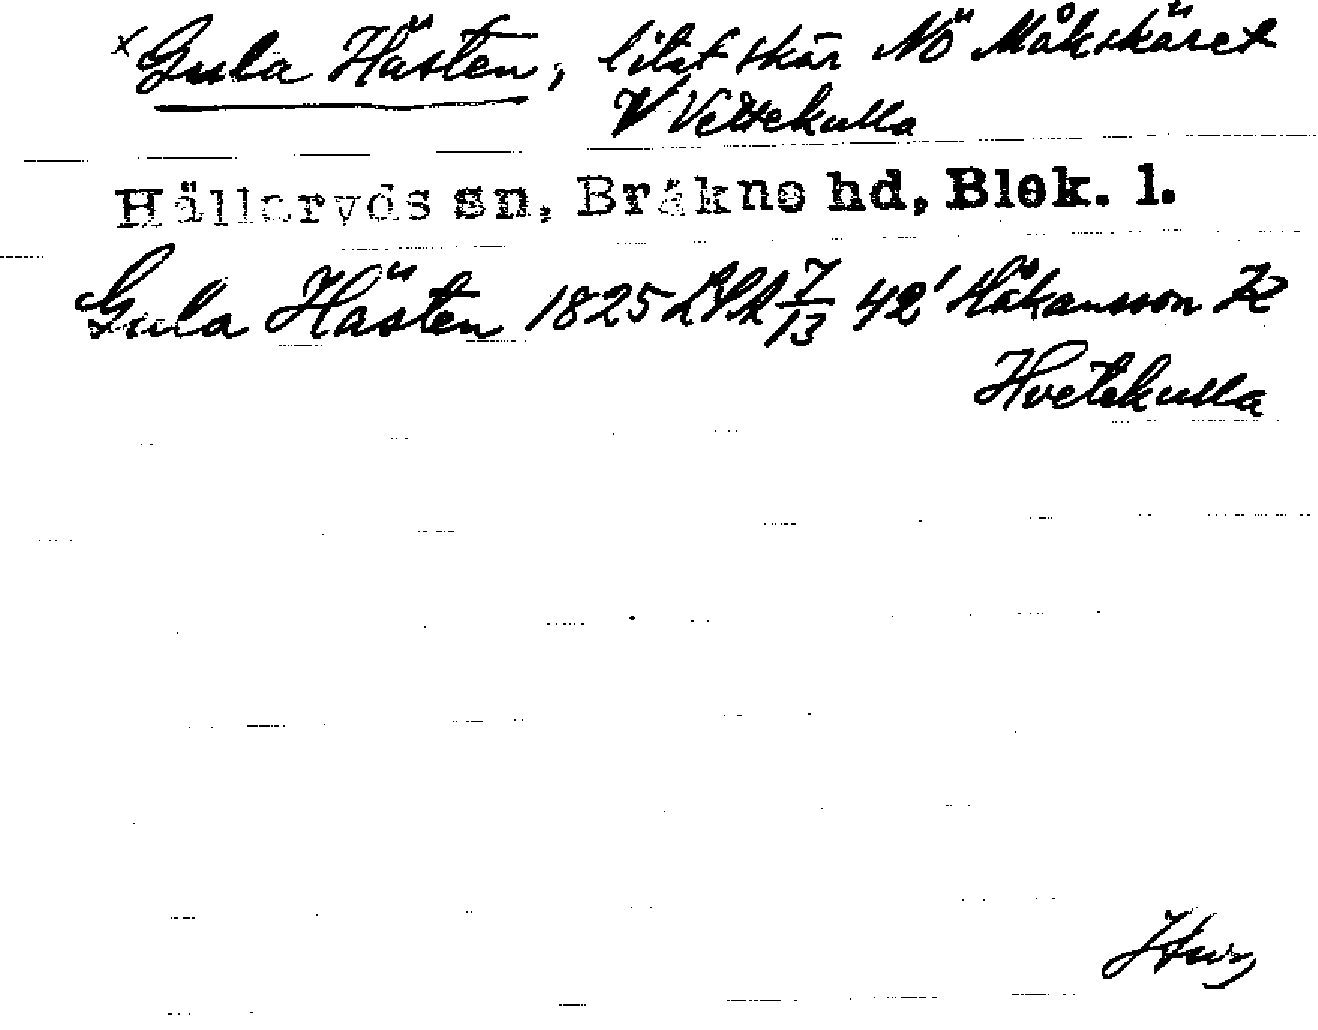 x Gula Hästen, litet skär NÖ Måkskäret
V Vettekulla
Hällaryds sn, Bräkne hd, Blek. l.
Gula Hästen 1825 7/13 42' Håkansson K
Hvetekulla